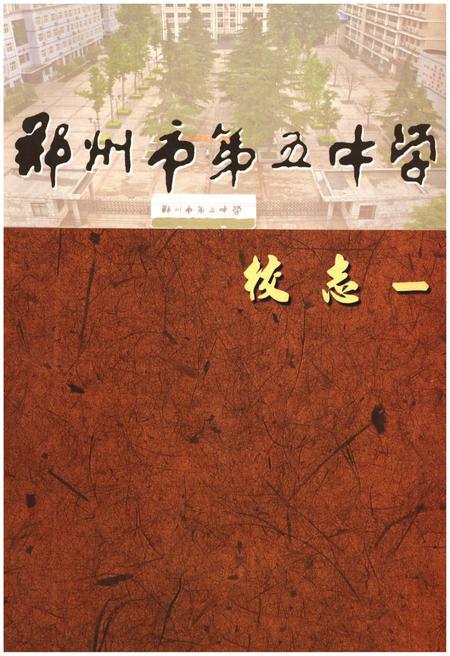 郑州市第五中学
郑州市第五中学
校志一